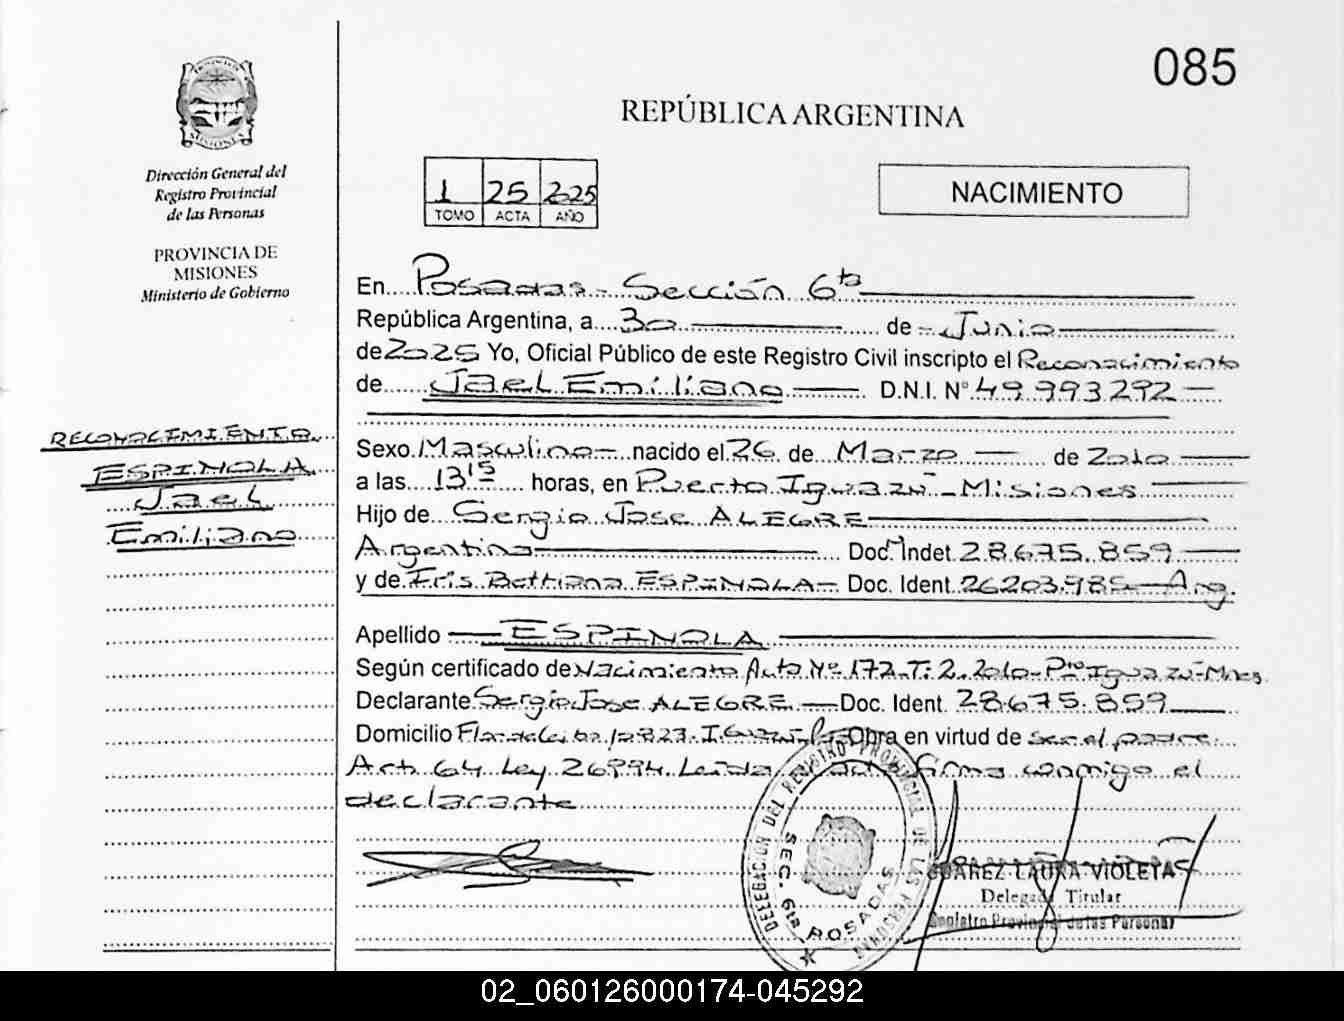 085
PROVINCIA
MISIONES
Dirección General del
Registro Provincial
de las Personas
PROVINCIA DE
MISIONES
Ministerio de Gobierno
RECONOCIMIENTO
ESPINOLA
Jael
Emiliano
REPÚBLICA ARGENTINA
1 25 2025
TOMO ACTA AÑO
NACIMIENTO
En Posadas - Sección 6ta
República Argentina, a 30 de Junio
de 2025 Yo, Oficial Público de este Registro Civil inscripto el Reconocimiento
de Jael Emiliano D.N.I. N° 49.993.292
Sexo Masculino nacido el 26 de Marzo de 2010
a las 13 15 horas, en Puerto Iguazú - Misiones
Hijo de Sergio Jose ALEGRE
Argentino Doc. Indet 28.675.859
y de Iris Bettiana ESPINOLA Doc. Ident 26203.985 Arg.
Apellido ESPINOLA
Según certificado de Nacimiento Acta Nº 172 T: 2. 2010 - Pto Iguazú - Mnes.
Declarante Sergio Jose ALEGRE Doc. Ident 28.675.859
Domicilio Obra en virtud de ser el padre
Art. 64 Ley 26994. Leída firma conmigo el
declarante
DELEGACION DEL REGISTRO PROVINCIAL DE LAS PERSONAS
SEC. 6ta POSADAS
SUAREZ LAURA VIOLETA
Delegada Titular
Registro Provincial de las Personas
02_060126000174-045292